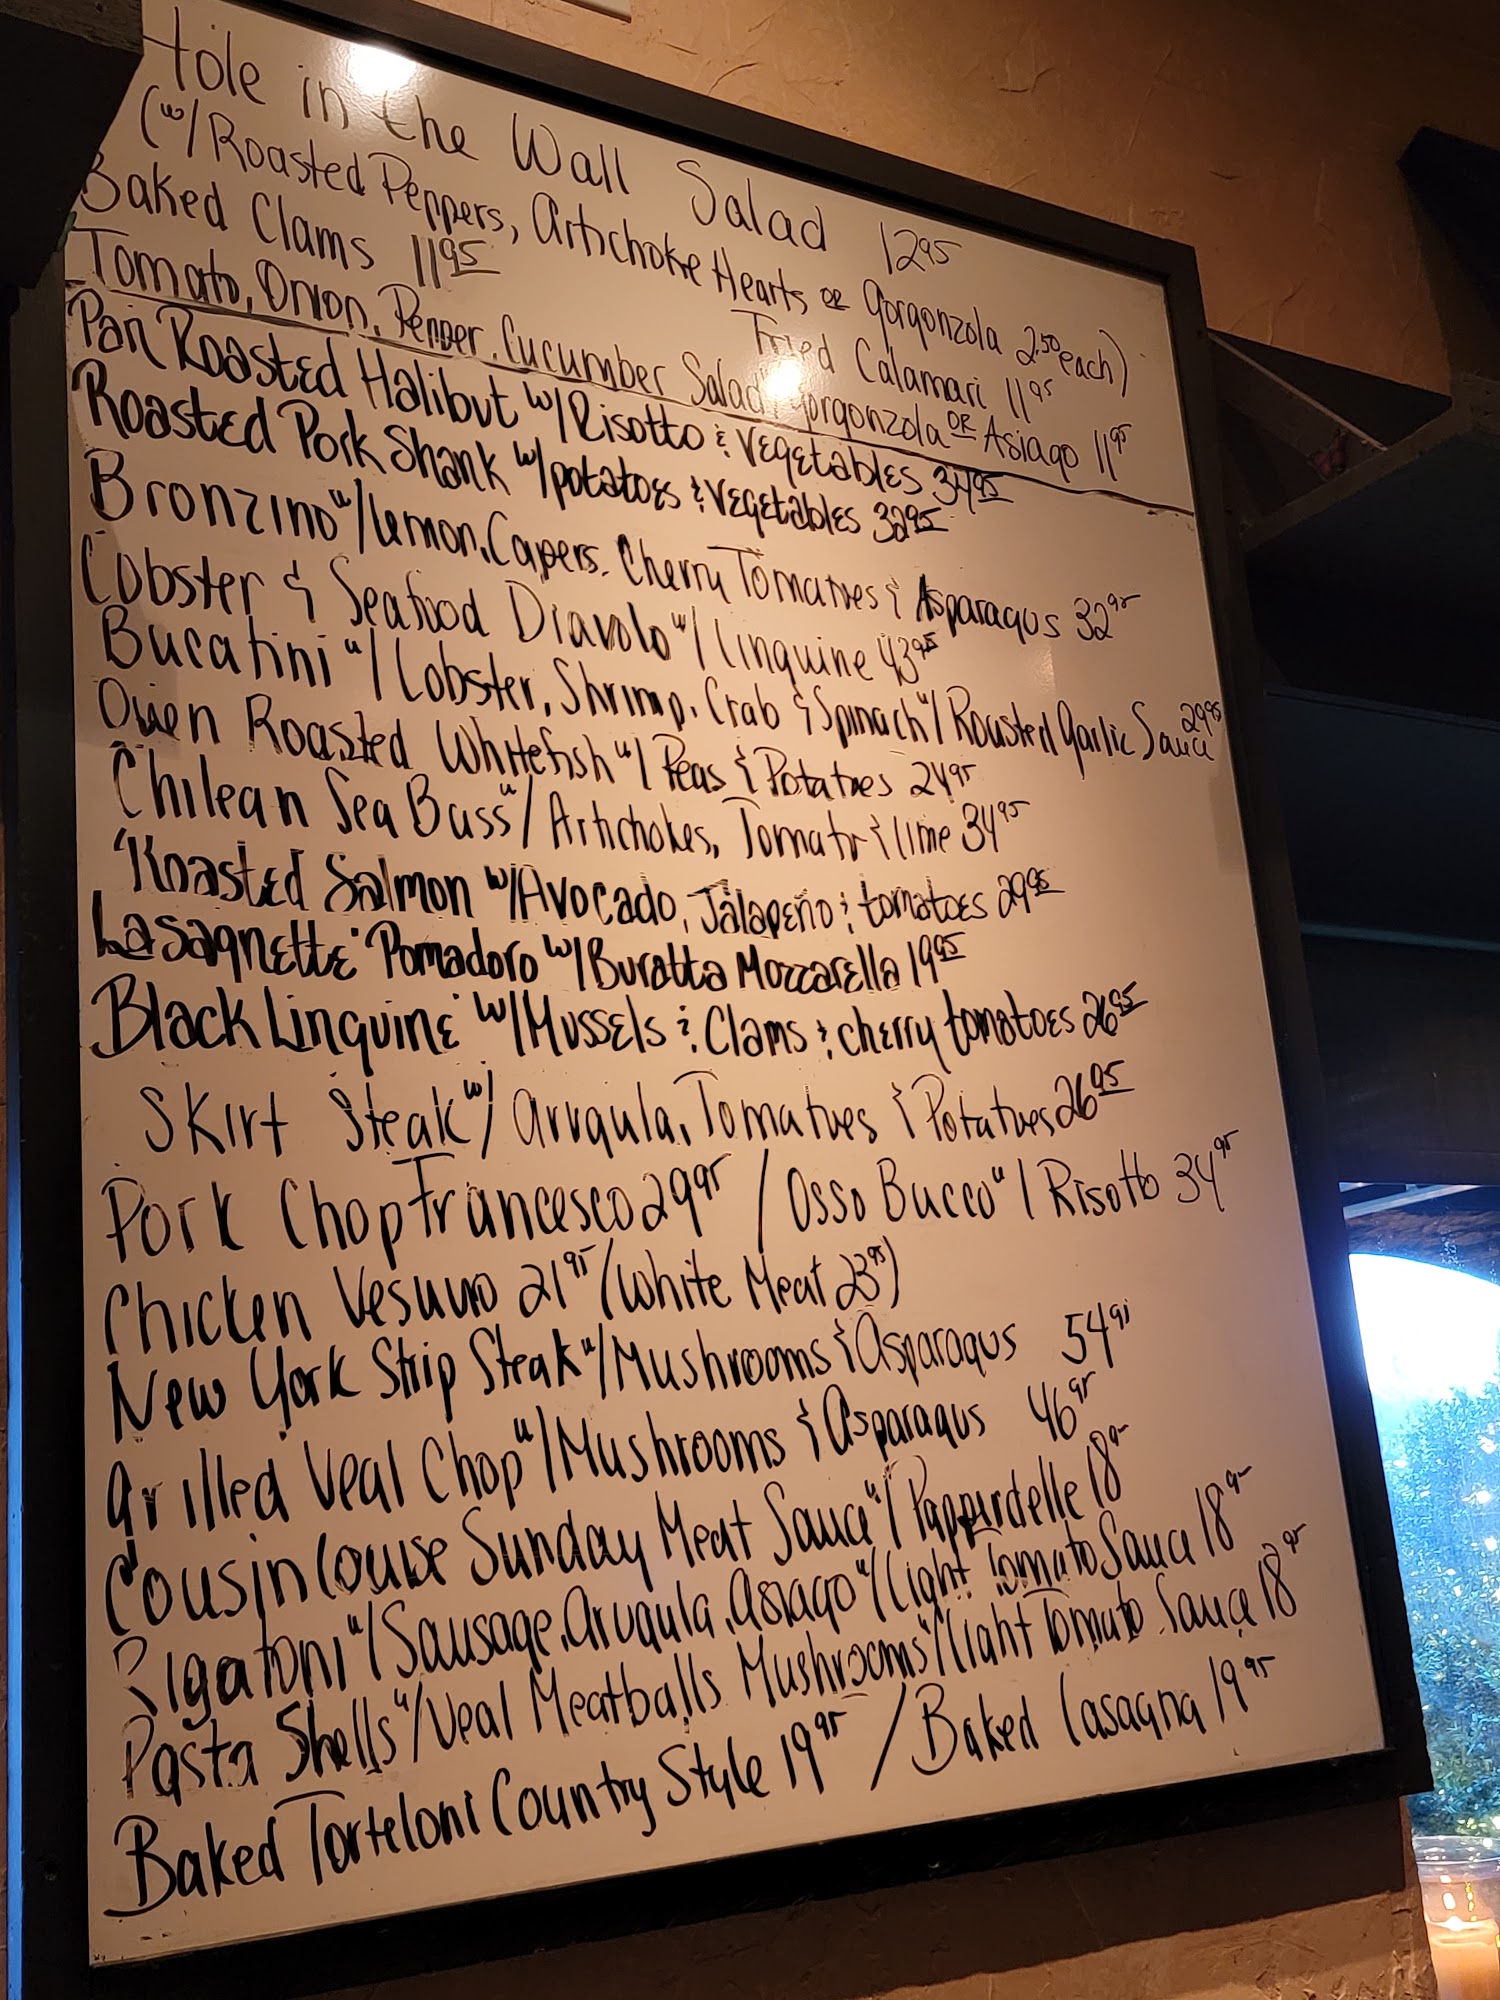 Hole in the Wall Salad 12 95
(w/Roasted Peppers, Artichoke Hearts or Gorgonzola 2.50 each)
Baked Clams 11 95 Fried Calamari 11 95
Tomato, Onion, Pepper, Cucumber Salad Gorgonzola or Asiago 11 95
Pan Roasted Halibut w/Risotto & Vegetables 34 95
Roasted Pork Shank w/potatoes & Vegetables 32 95
Bronzino w/Lemon, Capers, Cherry Tomatoes & Asparagus 32 95
Lobster & Seafood Diavolo w/ Linguine 43 95
Bucatini w/ Lobster, Shrimp, Crab & Spinach w/ Roasted Garlic Sauce 29 95
Oven Roasted Whitefish w/ Peas & Potatoes 24 95
Chilean Sea Bass w/ Artichokes, Tomato & Lime 34 95
Roasted Salmon w/Avocado, Jalapeño & tomatoes 29 95
Lasagnette Pomadoro w/Buratta Mozzarella 19 95
Black Linguine w/Mussels & Clams & cherry tomatoes 26 95
Skirt Steak w/ Arugula, Tomatoes & Potatoes 26 95
Pork Chop Francesco 29 95 / Osso Bucco w/ Risotto 34 95
Chicken Vesuvio 21 95 (White Meat 23 95)
New York Strip Steak w/Mushrooms & Asparagus 54 95
Grilled Veal Chop w/Mushrooms & Asparagus 46 95
Cousin Louise Sunday Meat Sauce w/ Pappardelle 18 95
Rigatoni w/Sausage, Arugula, Asiago w/Light Tomato Sauce 18 95
Pasta Shells w/Veal Meatballs Mushrooms w/Light Tomato Sauce 18 95
Baked Torteloni Country Style 19 95 / Baked Lasagna 19 95